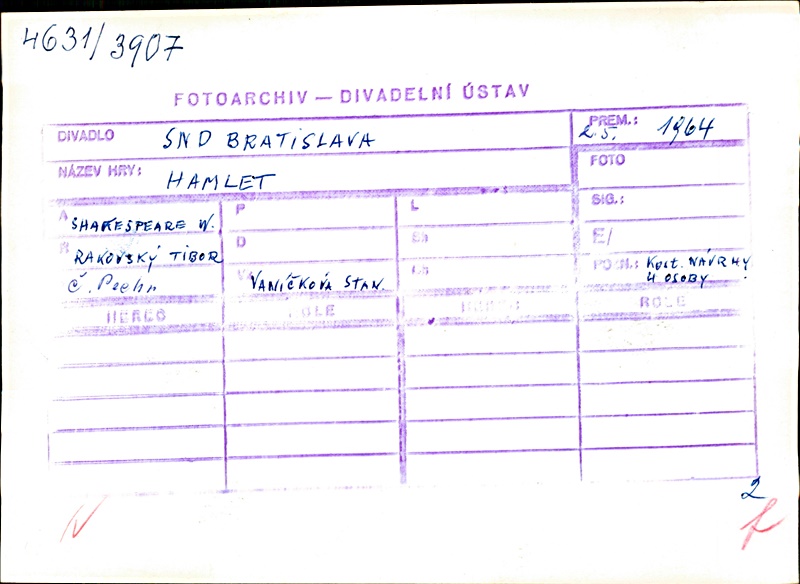 4631/3907
FOTOARCHIV — DIVADELNÍ ÚSTAV
DIVADLO SND BRATISLAVA
PREM.: 2.5. 1964
NÁZEV HRY: HAMLET
FOTO
A SHAKESPEARE W.
P
L
SIG.:
R RAKOVSKÝ TIBOR
D
E/
Č.
VANÍČKOVÁ STAN.
POZN.: KOST. NÁVRHY
4 OSOBY
HEREC ROLE HEREC ROLE
2